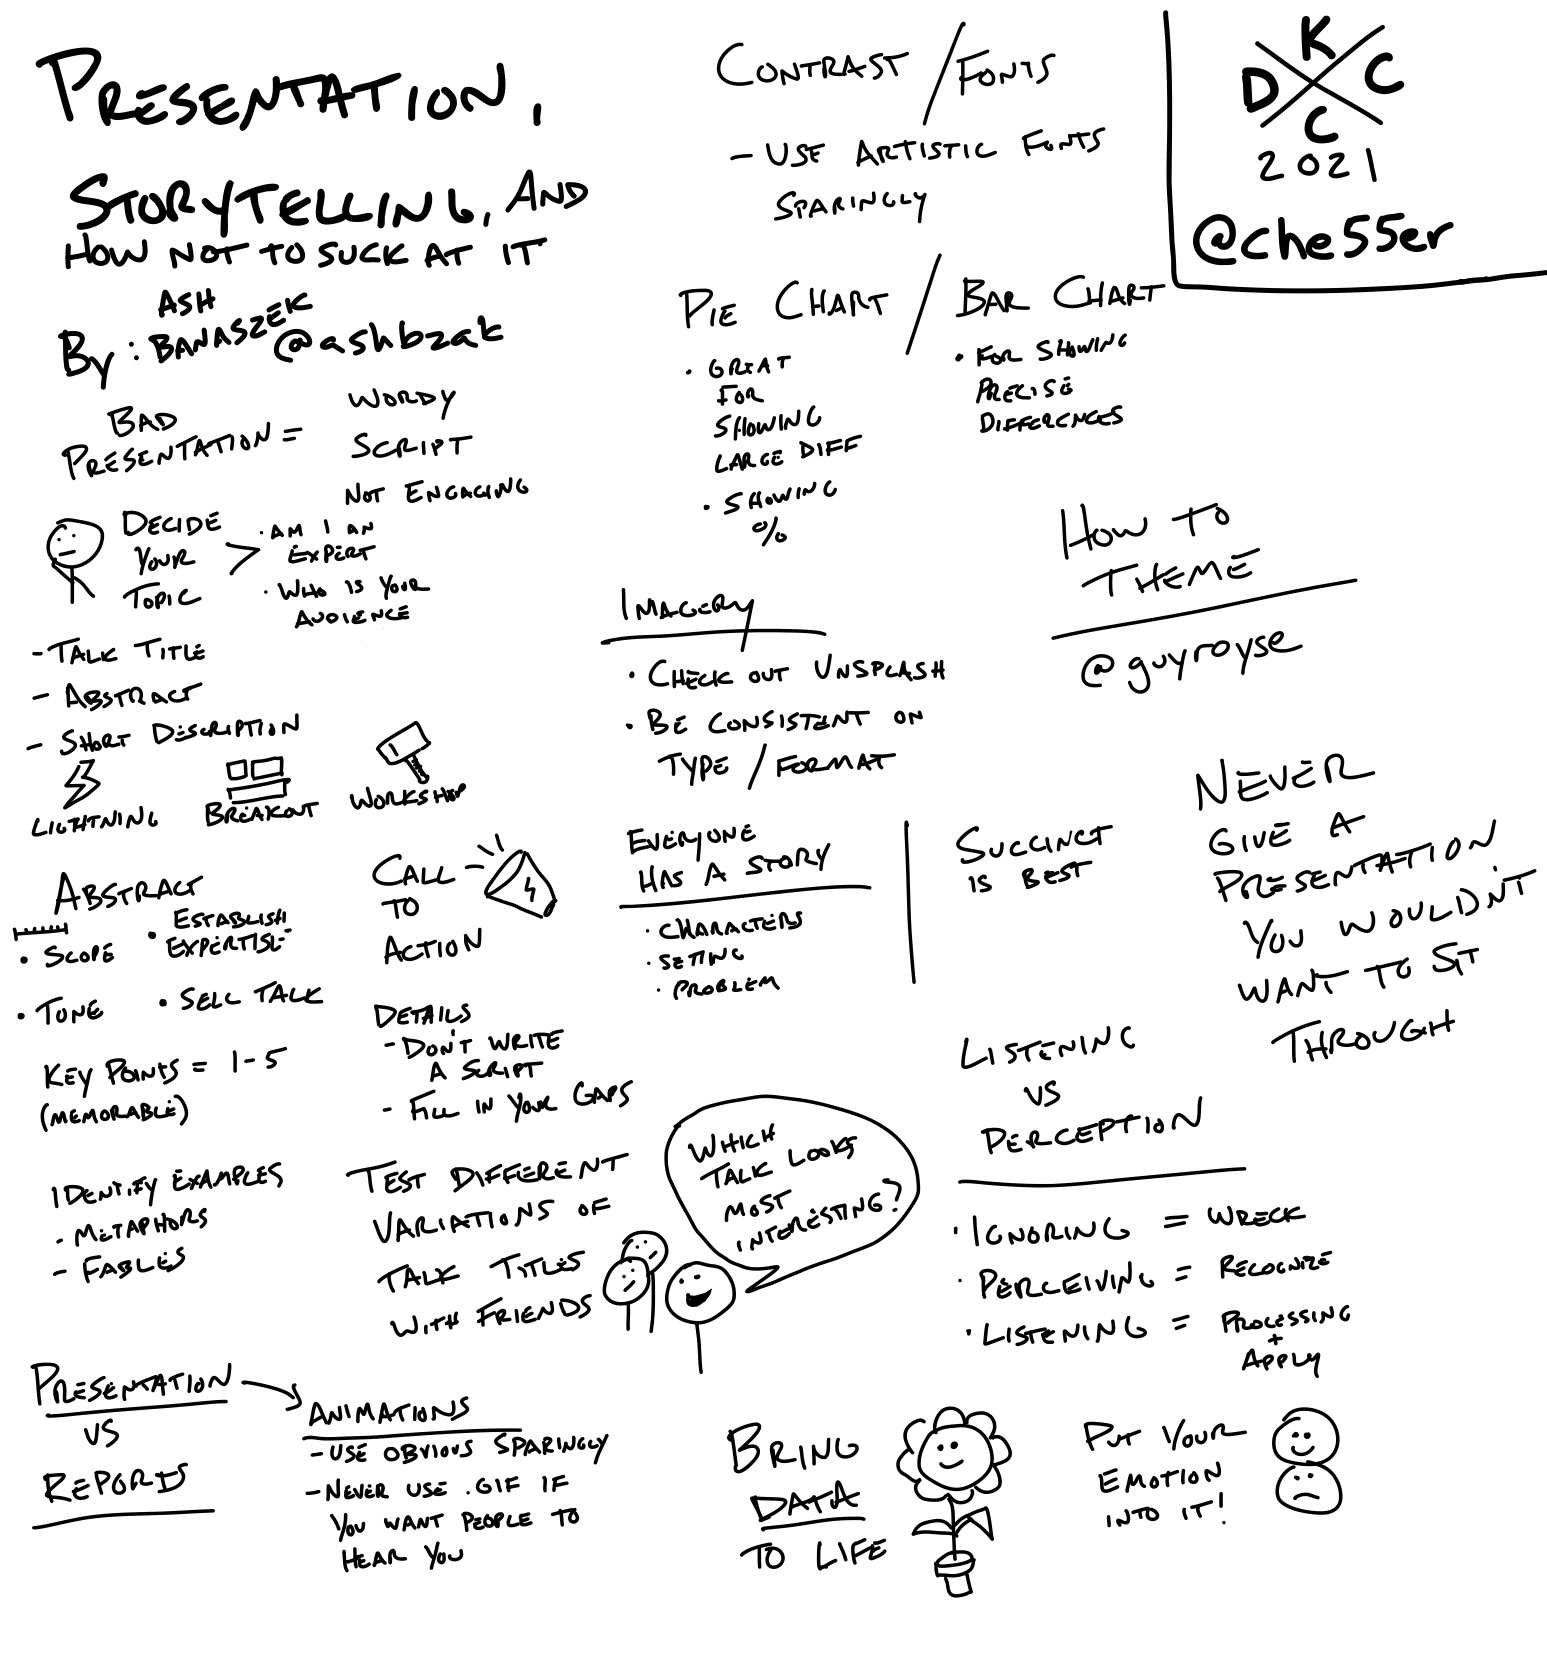 PRESENTATION,
STORYTELLING, AND
HOW NOT TO SUCK AT IT
By: ASH BANASZEK @ashbzak
BAD
PRESENTATION =
WORDY
SCRIPT
NOT ENGAGING
DECIDE
YOUR
TOPIC
>
· AM I AN
EXPERT
· WHO IS YOUR
AUDIENCE
- TALK TITLE
- ABSTRACT
- SHORT DESCRIPTION
LIGHTNING
BREAKOUT
WORKSHOP
ABSTRACT
• SCOPE
• ESTABLISH
EXPERTISE
• TONE
• SELL TALK
KEY POINTS = 1-5
(MEMORABLE)
IDENTIFY EXAMPLES
- METAPHORS
- FABLES
CALL
TO
ACTION
DETAILS
- DON'T WRITE
A SCRIPT
- FILL IN YOUR GAPS
TEST DIFFERENT
VARIATIONS OF
TALK TITLES
WITH FRIENDS
WHICH
TALK LOOKS
MOST
INTERESTING?
PRESENTATION
VS
REPORTS
ANIMATIONS
- USE OBVIOUS SPARINGLY
- NEVER USE .GIF IF
YOU WANT PEOPLE TO
HEAR YOU
CONTRAST / FONTS
- USE ARTISTIC FONTS
SPARINGLY
PIE CHART / BAR CHART
• GREAT
FOR
SHOWING
LARGE DIFF
• SHOWING
%
• FOR SHOWING
PRECISE
DIFFERENCES
IMAGERY
• CHECK OUT UNSPLASH
• BE CONSISTENT ON
TYPE / FORMAT
EVERYONE
HAS A STORY
· CHARACTERS
· SETTING
· PROBLEM
SUCCINCT
IS BEST
HOW TO
THEME
@guyroyse
NEVER
GIVE A
PRESENTATION
YOU WOULDN'T
WANT TO SIT
THROUGH
LISTENING
VS
PERCEPTION
· IGNORING = WRECK
· PERCEIVING = RECOGNIZE
· LISTENING = PROCESSING
+
APPLY
BRING
DATA
TO LIFE
PUT YOUR
EMOTION
INTO IT!
K
D C
C
2021
@che55er